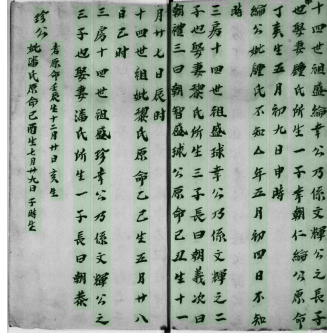 十四世祖盛綸李公乃係文輝公之長子
也娶妻鍾氏所生一子李朝仁綸公原命
丁亥生五月初九日申時
綸公妣鍾氏不知△年五月初四日不知
時
三房十四世祖盛球李公乃係文輝之二
子也娶妻黎氏所生三子長曰朝義次曰
朝禮三曰朝智盛球公原命己丑生十一
月廿七日辰時
十四世祖妣黎氏原命己巳生五月廿八
日巳時
三房十四世祖盛珍李公乃係文輝公之
三子也娶妻潘氏所生一子長曰朝泰
珍公
考原命壬辰生十二月廿二日亥生
妣潘氏原命己酉生七月廿九日子時生